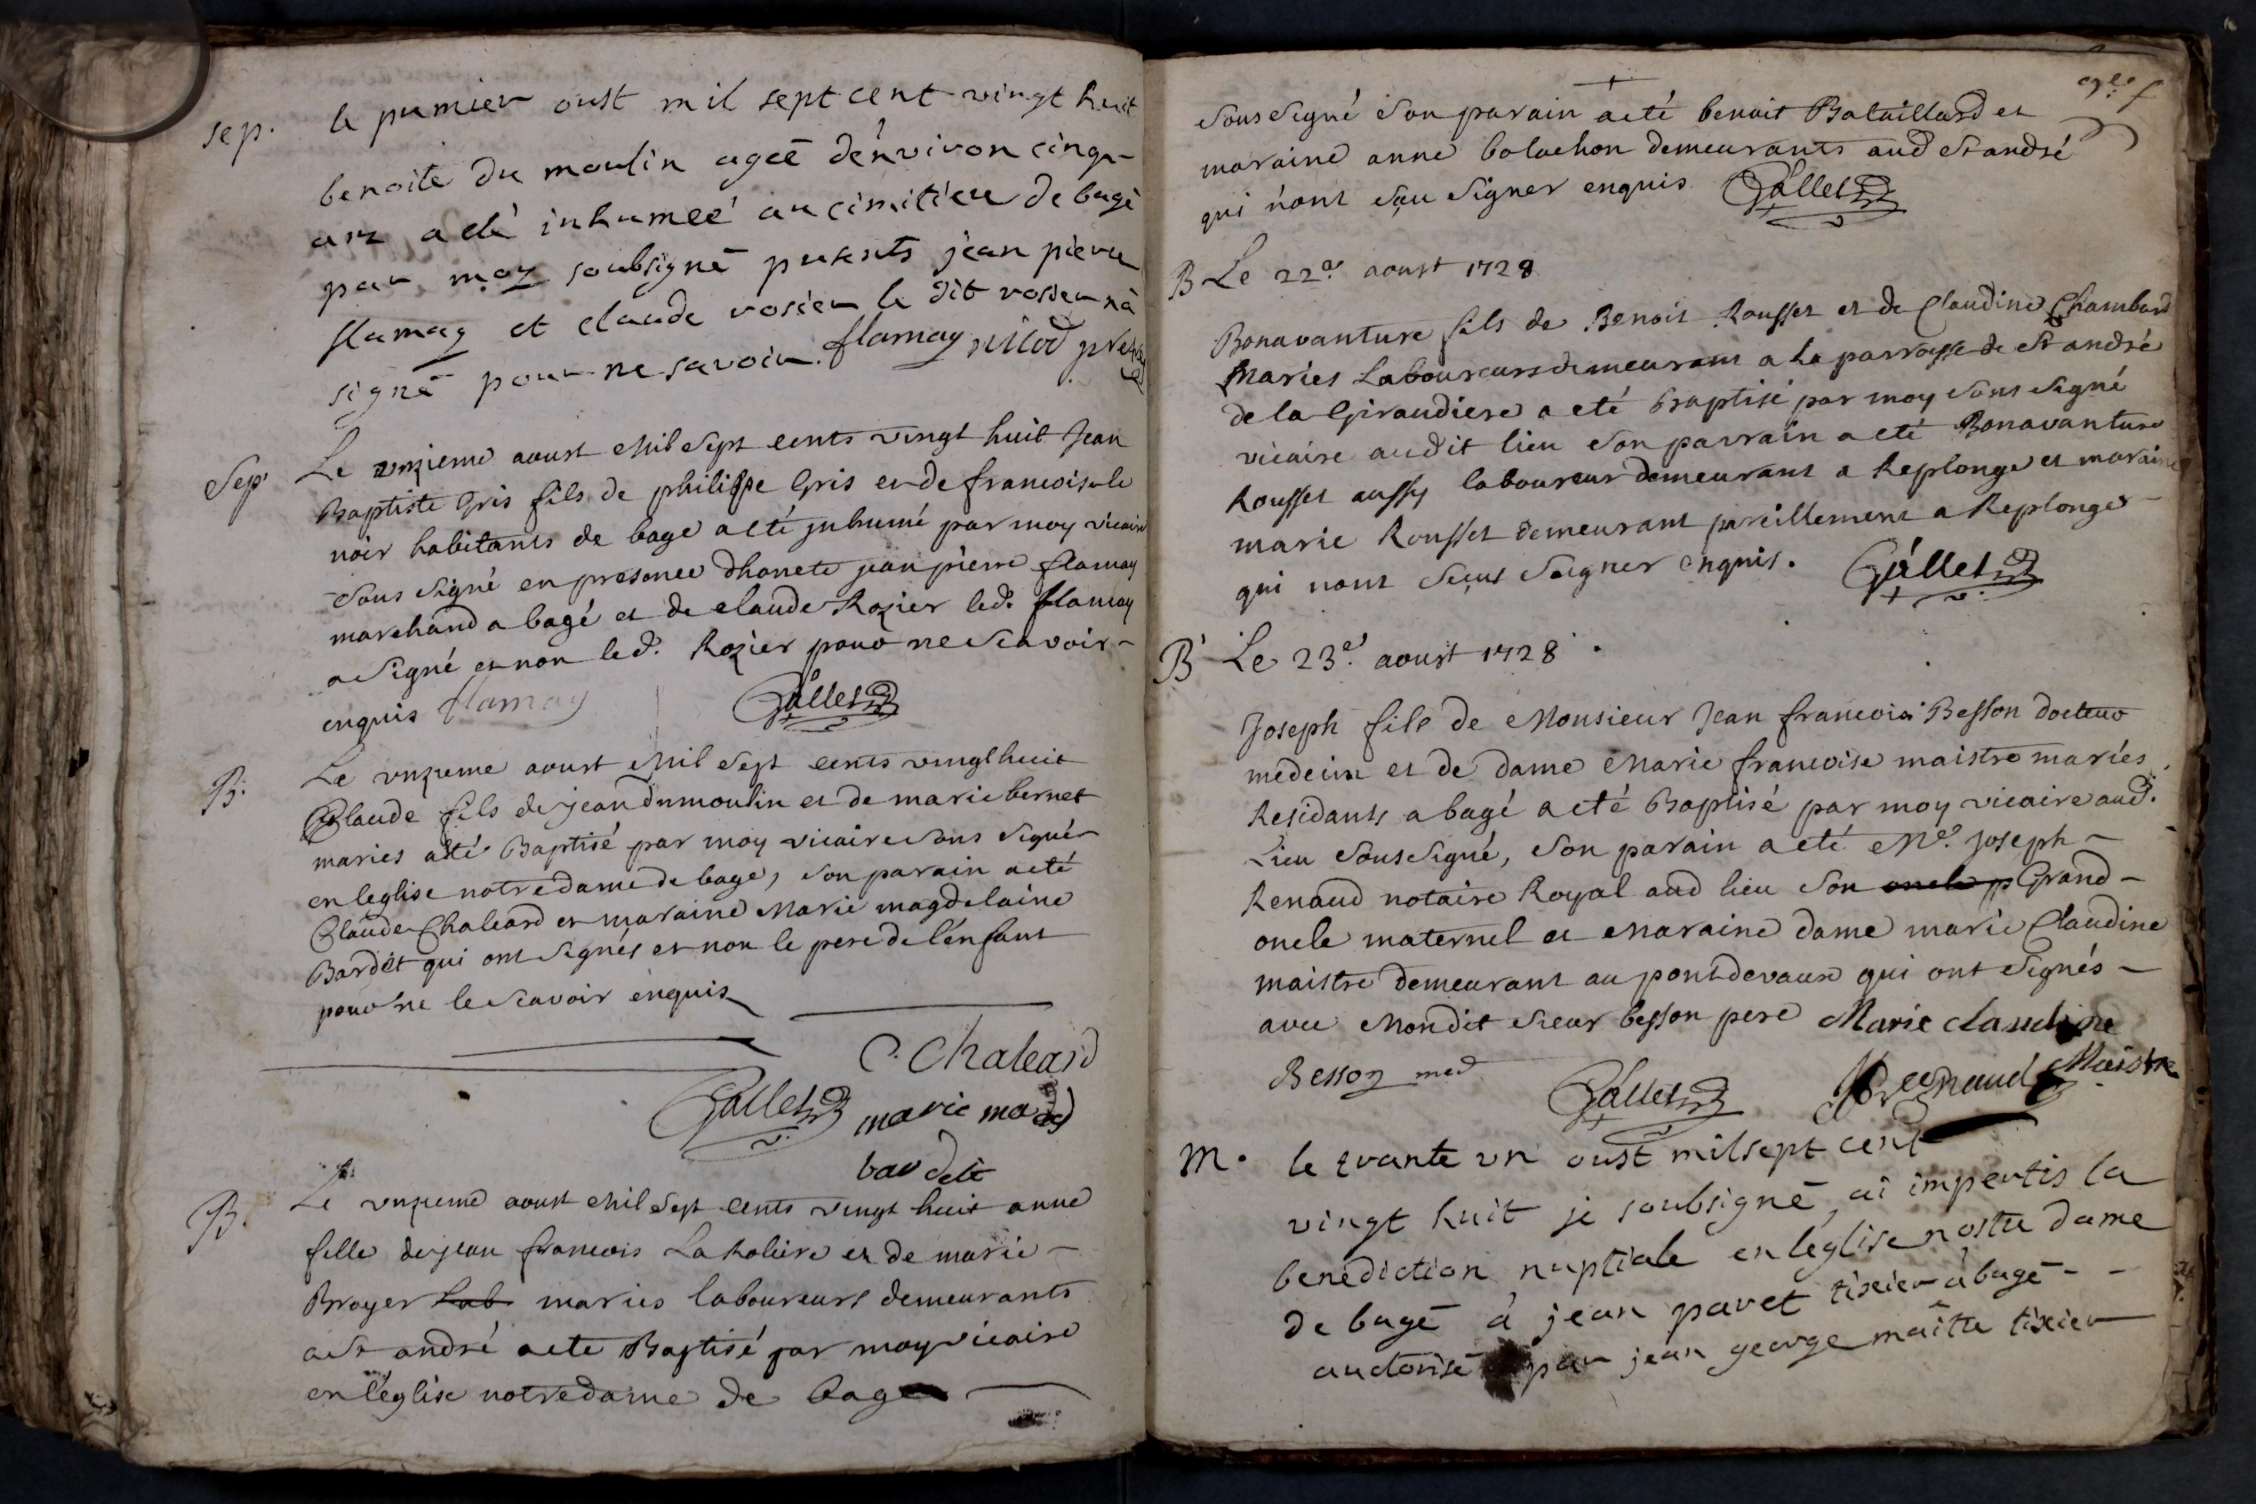 sep. le pumier oust mil sept cent vingt huit
benoite du moulin ageē d'environ cinq
ans a eté inhumeé au cimitieu de bagé
par moy soubsigné pusents jean pierre
flamay et claude rosier le dit rosier n'a
signé pour ne savoir. flamay
Sep. Le vnzieme aoust Mil Sept cents vingt huit Jean
Baptiste Gris fils de philippe Gris et de francoise le
noir habitants de bage a eté jnhumé par moy vicaire
sous signé en presence dhonete jean pierre flamay
marchand a bagé et de claude Rozier led. flamay
a signé et non led. Rozier pour ne scavoir
enquis flamay Gallet
B. Le vnzieme aoust Mil Sept cents vingt huit
Claude fils de jean dumoulin et de marie bernet
maries a eté Baptisé par moy vicaire sous signé
en leglise notre dame de bage, son parain a eté
Claude Chaleard et maraine Marie magdelaine
Bardet qui ont signés et non le pere de l'énfant
pour ne le scavoir enquis
C. Chaleard
Gallet marie mad
bardete
B. Le vnzieme aoust Mil Sept cents vingt huit anne
fille de jean francois La Roliere et de marie
Broyer Lab maries laboureurs demeurants
a St andré a ete Baptisé par moy vicaire
en l'église notre dame de bage
sous signé son parain a eté benoit Bataillard et
maraine anne bolachon demeurants aud St andré
qui n'ont sçu signer enquis Gallet
B Le 22e aoust 1728
Bonavanture fils de Benoit Rousset et de Claudine Chambard
Maries Laboureurs demeurant a La parroisse de St andré
de la Giraudiere a eté Baptisé par moy sous signé
vicaire audit lieu son parrain a eté Bonavanture
Rousset aussy laboureur demeurant a Replonge et maraine
marie Rousset demeurant pareillement a Replonge
qui nont sçeus Seigner enquis. Gallet
B Le 23e. aoust 1728
Joseph fils de Monsieur Jean francois Besson docteur
medecin et de dame Marie francoise maistre mariés
Residants a bagé a eté Baptisé par moy vicaire aud.
Lieu sous signé, son parain a eté Me. Joseph
Renaud notaire Royal aud lieu son oncle p Grand
oncle maternel et Maraine dame marie Claudine
maistre demeurant au pontdevaux qui ont signés
avec Mondit sieur besson pere Marie claudine
Besson med Gallet Regnaud Maistre
M. le trante vn oust mil sept cent
vingt huit je soubsigné ai impertis la
benediction nuptiale en léglise nostre dame
de bagé à jean pavet tixier à bagé
auctorisé par jean george maître tixier